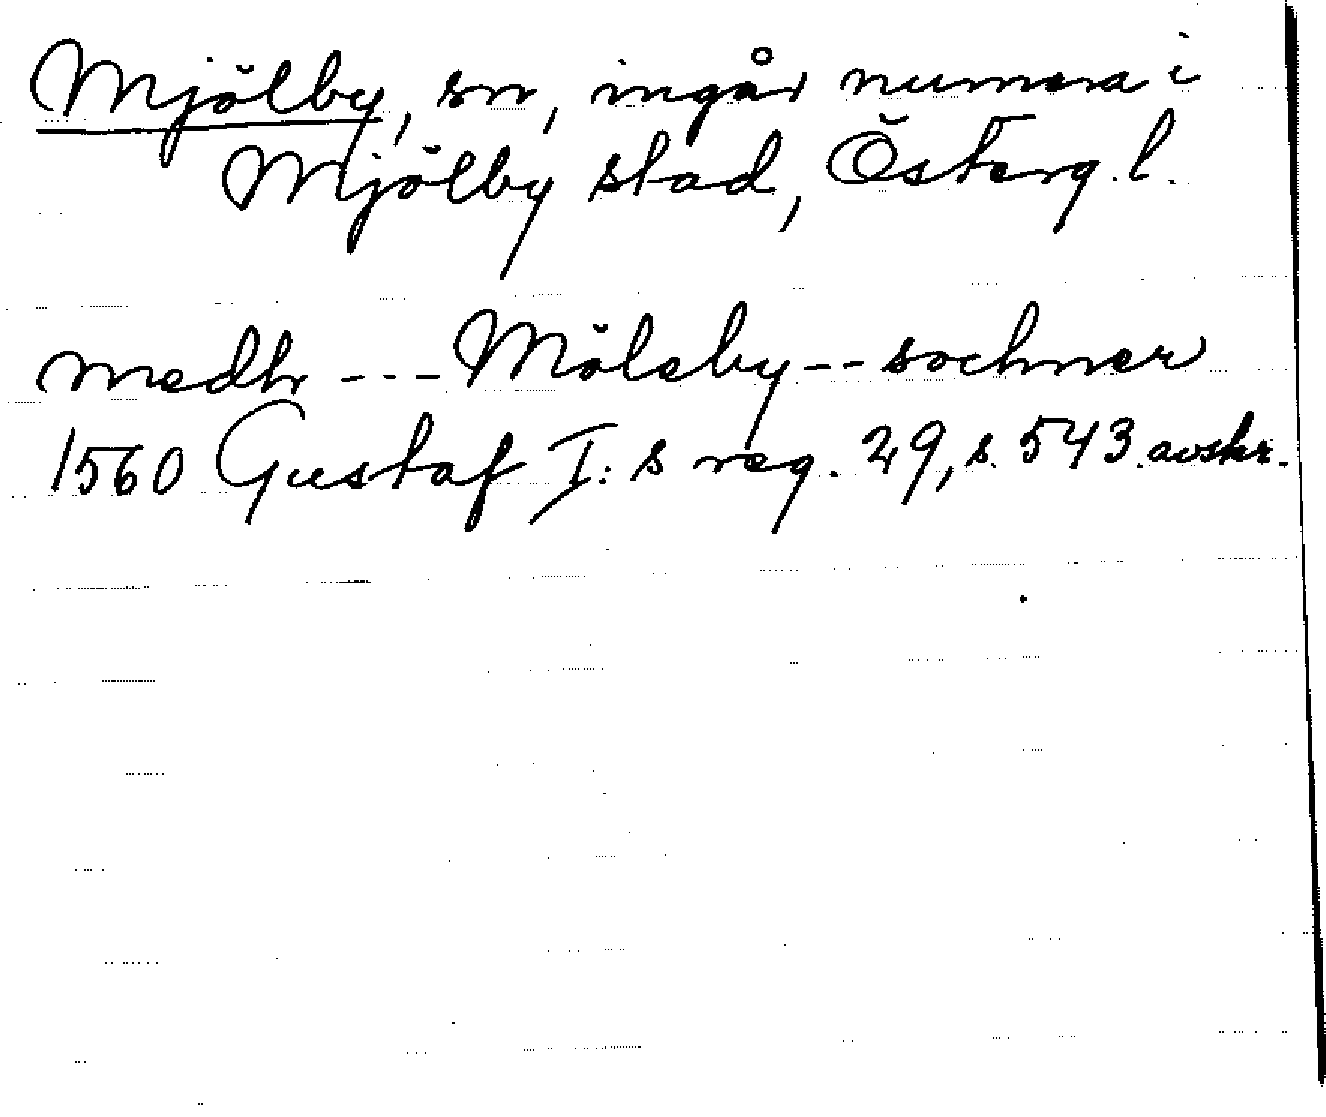 Mjölby, sn, ingår numera i
Mjölby stad, Österg. l.
medh --- Möleby -- sochner
1560 Gustaf I: s reg. 29, s. 543. avskr.